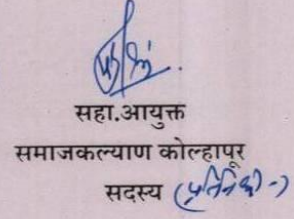 सहा.आयुक्त
समाजकल्याण कोल्हापूर
सदस्य (प्रतिनिधी -)